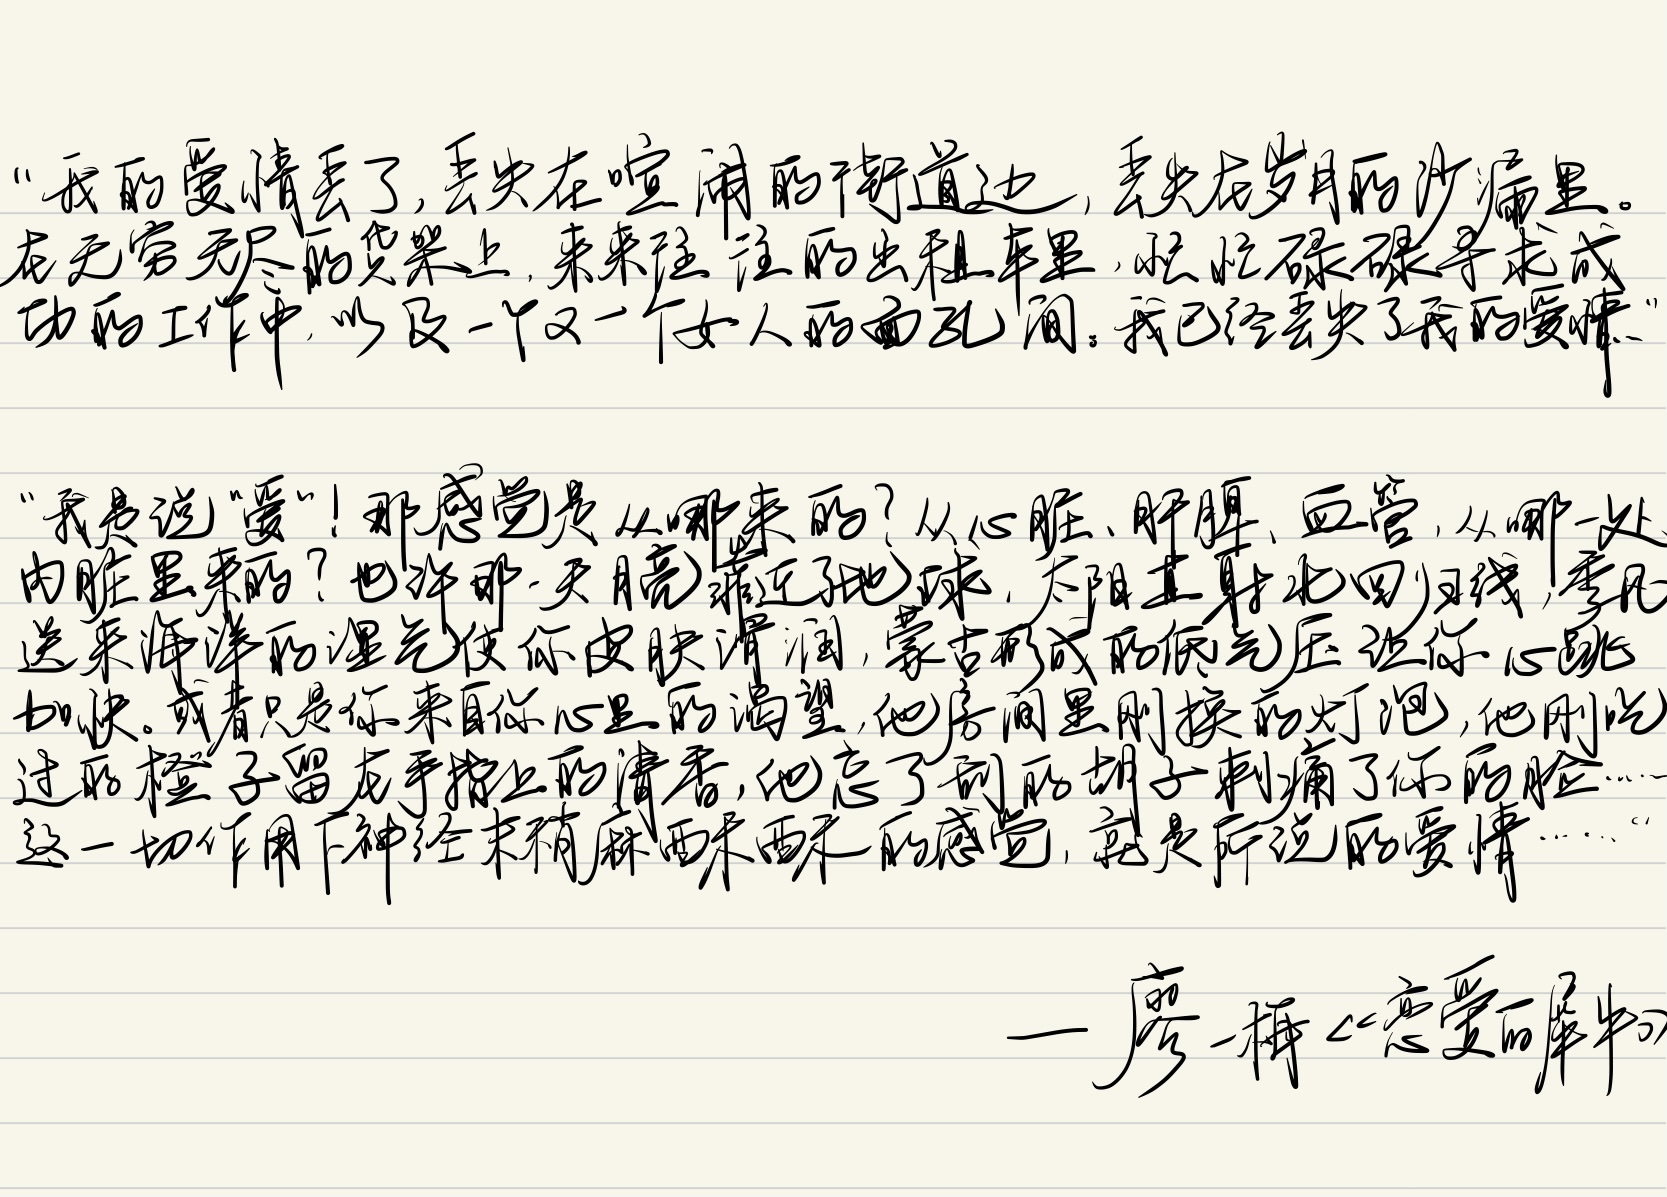 “我的爱情丢了，丢失在喧闹的街道边，丢失在岁月的沙漏里。
在无穷无尽的货架上，来来往往的出租车里，忙忙碌碌寻求成
功的工作中，以及一个又一个女人的面孔间。我已经丢失了我的爱情…”
“我是说“爱”！那感觉是从哪来的？从心脏、肝脾、血管，从哪一处
内脏里来的？也许那一天月亮靠近了地球，太阳直射北回归线，季风
送来海洋的湿气使你皮肤滑润，蒙古形成的低气压让你心跳
加快。或者只是你来自你心里的渴望，他房间里刚换的灯泡，他刚吃
过的橙子留在手指上的清香，他忘了刮的胡子刺痛了你的脸……
这一切作用下神经末梢麻酥酥的感觉，就是所说的爱情……”
—廖一梅《恋爱的犀牛》